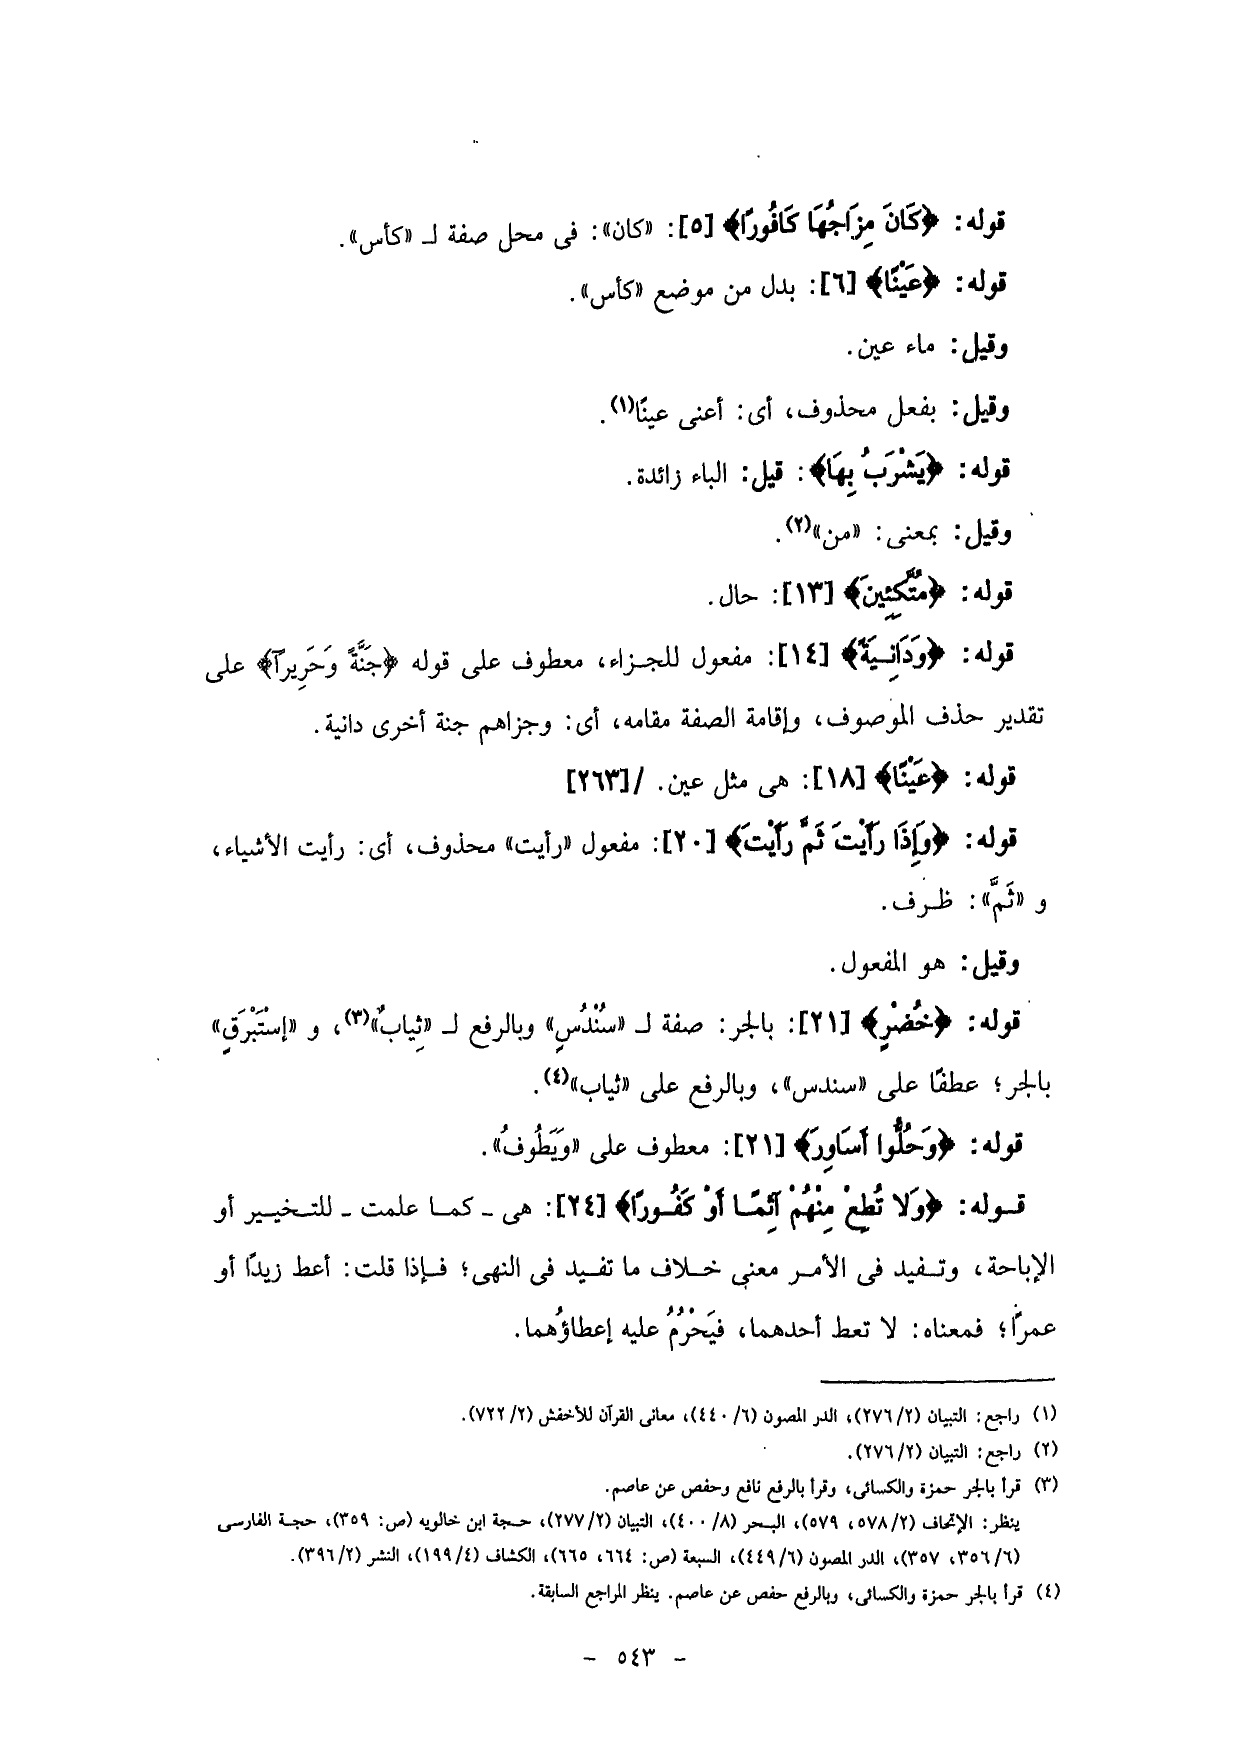 قوله: ﴿كَانَ مِزَاجُهَا كَافُورًا﴾ [٥]: «كان»: فى محل صفة لـ «كأس».
قوله: ﴿عَيْنًا﴾ [٦]: بدل من موضع «كأس».
وقيل: ماء عين.
وقيل: بفعل محذوف، أى: أعنى عينًا(١).
قوله: ﴿يَشْرَبُ بِهَا﴾: قيل: الباء زائدة.
وقيل: بمعنى: «من»(٢).
قوله: ﴿مُتَّكِئِينَ﴾ [١٣]: حال.
قوله: ﴿وَدَانِيَةً﴾ [١٤]: مفعول للجزاء، معطوف على قوله ﴿جَنَّةً وَحَرِيرًا﴾ على
تقدير حذف الموصوف، وإقامة الصفة مقامه، أى: وجزاهم جنة أخرى دانية.
قوله: ﴿عَيْنًا﴾ [١٨]: هى مثل عين. /[٢٦٣]
قوله: ﴿وَإِذَا رَأَيْتَ ثَمَّ رَأَيْتَ﴾ [٢٠]: مفعول «رأيت» محذوف، أى: رأيت الأشياء،
و «ثَمَّ»: ظرف.
وقيل: هو المفعول.
قوله: ﴿خُضْرٍ﴾ [٢١]: بالجر: صفة لـ «سُنْدُسٍ» وبالرفع لـ «ثِيابُ»(٣)، و «إستَبْرَقٍ»
بالجر؛ عطفًا على «سندس»، وبالرفع على «ثياب»(٤).
قوله: ﴿وَحُلُّوا أَسَاوِرَ﴾ [٢١]: معطوف على «وَيَطُوفُ».
قوله: ﴿وَلا تُطِعْ مِنْهُمْ آثِمًا أَوْ كَفُورًا﴾ [٢٤]: هى ـ كما علمت ـ للتخيير أو
الإباحة، وتفيد فى الأمر معنى خلاف ما تفيد فى النهى؛ فإذا قلت: أعط زيدًا أو
عمرًا؛ فمعناه: لا تعط أحدهما، فيَحْرُمُ عليه إعطاؤُهما.
(١) راجع: التبيان (٢/ ٢٧٦)، الدر المصون (٦/ ٤٤٠)، معانى القرآن للأخفش (٢/ ٧٢٢).
(٢) راجع: التبيان (٢/ ٢٧٦).
(٣) قرأ بالجر حمزة والكسائى، وقرأ بالرفع نافع وحفص عن عاصم.
ينظر: الإتحاف (٢/ ٥٧٨، ٥٧٩)، البحر (٨/ ٤٠٠)، التبيان (٢/ ٢٧٧)، حجة ابن خالويه (ص: ٣٥٩)، حجة الفارسى
(٦/ ٣٥٦، ٣٥٧)، الدر المصون (٦/ ٤٤٩)، السبعة (ص: ٦٦٤، ٦٦٥)، الكشاف (٤/ ١٩٩)، النشر (٢/ ٣٩٦).
(٤) قرأ بالجر حمزة والكسائى، وبالرفع حفص عن عاصم. ينظر المراجع السابقة.
- ٥٤٣ -